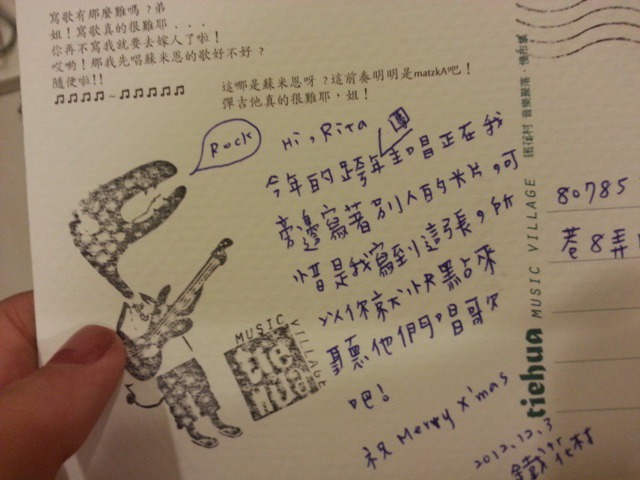 寫歌有那麼難嗎？弟
姐！寫歌真的很難耶...
你再不寫我就要去嫁人了啦！
哎喲！那我先唱蘇米恩的歌好不好？
隨便啦!!
♫♫♫♫～♫♫♫♫♫
這哪是蘇米恩呀？這前奏明明是matzkA吧！
彈吉他真的很難耶，姐！
Rock
Hi, Rita
今年的跨年團主唱正在我
旁邊寫著別人的卡片，可
惜是我寫到這張，所
以你就快點來
聽他們唱歌
吧！
祝 Merry X'mas
2012.12.3
鐵花村
MUSIC VILLAGE
tie
hua
鐵花村 音樂聚落．慢市集
tiehua MUSIC VILLAGE
80785
巷8弄